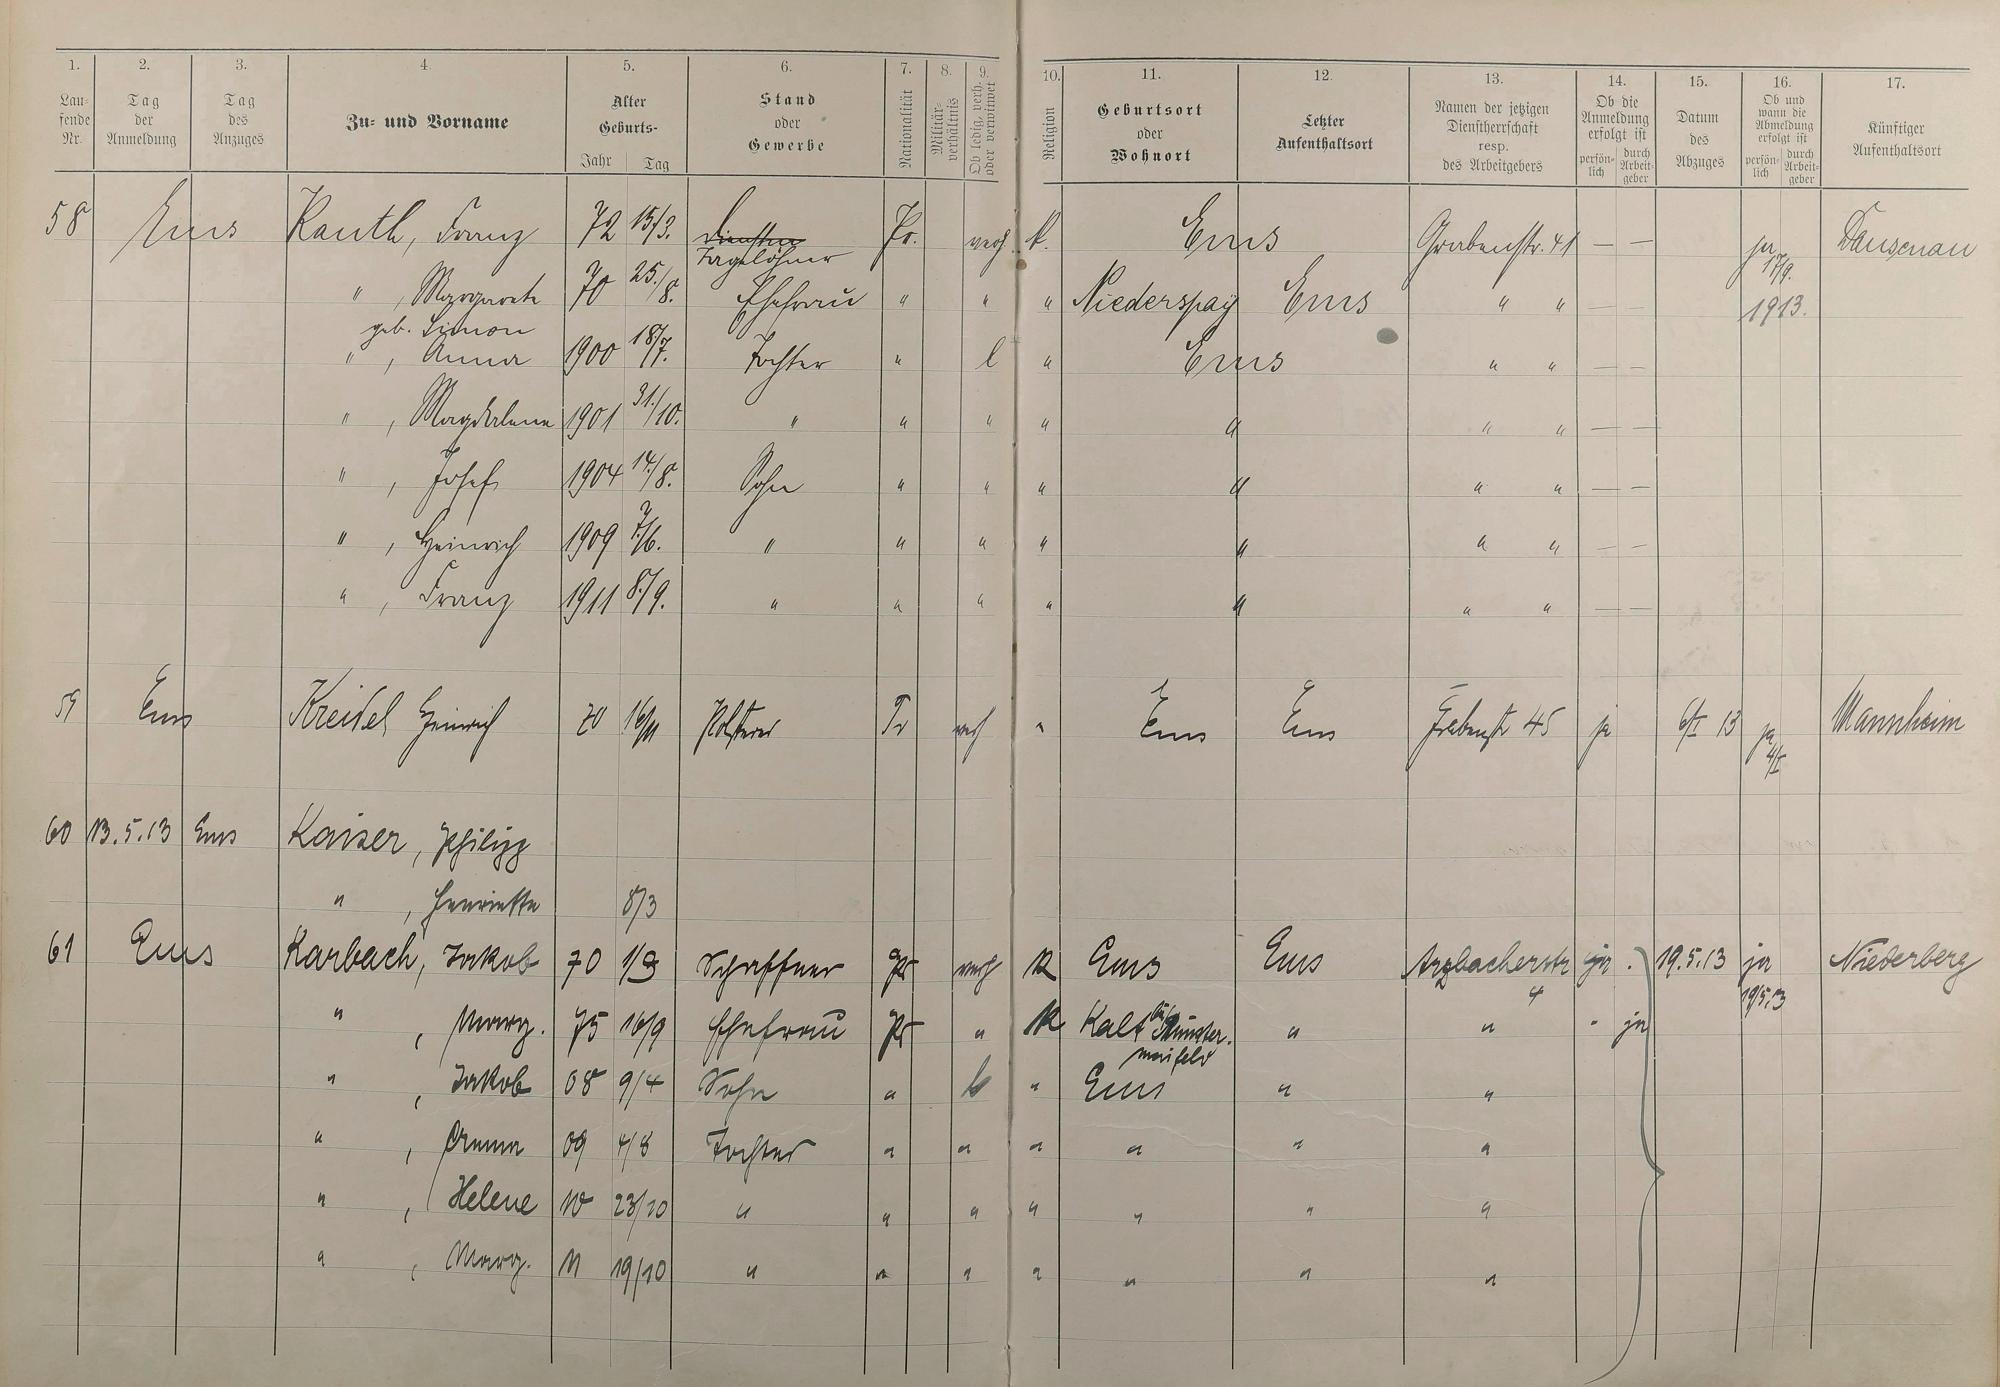 1. 2. 3. 4. 5. 6. 7. 8. 9. 10. 11. 12. 13. 14. 15. 16. 17.
Lau-fende Nr. | Tag der Anmeldung | Tag des Anzuges | Zu- und Vorname | Alter Geburts- Jahr Tag | Stand oder Gewerbe | Nationalität | Militär-verhältnis | Ob ledig, verh. oder verwitwet | Religion | Geburtsort oder Wohnort | Letzter Aufenthaltsort | Namen der jetzigen Dienstherrschaft resp. des Arbeitgebers | Ob die Anmeldung erfolgt ist persön-lich durch Arbeit-geber | Datum des Abzuges | Ob und wann die Abmeldung erfolgt ist persön-lich durch Arbeit-geber | Künftiger Aufenthaltsort
58 Ems Kauth, Franz 72 15/3. Tagelöhner Pr. verh. k. Ems Grabenstr. 41 — — ja 17/9. 1913. Dausenau
" , Margarete geb. Simon 70 25./8. Ehefrau " " " Niederspay Ems " " — —
" , Anna 1900 18/7. Tochter " l " Ems " " — —
" , Magdalena 1901 31./10. " " " " " " " — —
" , Josef 1904 14./8. Sohn " " " " " " — —
" , Heinrich 1909 7./6. " " " " " " " — —
" , Franz 1911 8./9. " " " " " " " — —
59 Ems Kreidel Heinrich 70 16/11 Polsterer Pr verh " Ems Ems Grabenstr 45 ja 6/5 13 ja 4/5 Mannheim
60 13.5.13 Ems Kaiser, Philipp
" , Henriette 8/3
61 Ems Karbach, Jakob 70 1/9 Schaffner Pr verh K Ems Ems Arzbacherstr 4 ja . 19.5.13 ja 19/5.13 Niederberg
" , Marg. 75 16/9 Ehefrau Pr " K Kalt bei Münster-maifeld " " " ja
" , Jakob 08 9/4 Sohn " l " Ems " "
" , Anna 09 4/8 Tochter " " " " " "
" , Helene 10 23/10 " " " " " " "
" , Marg. 11 19/10 " " " " " " "